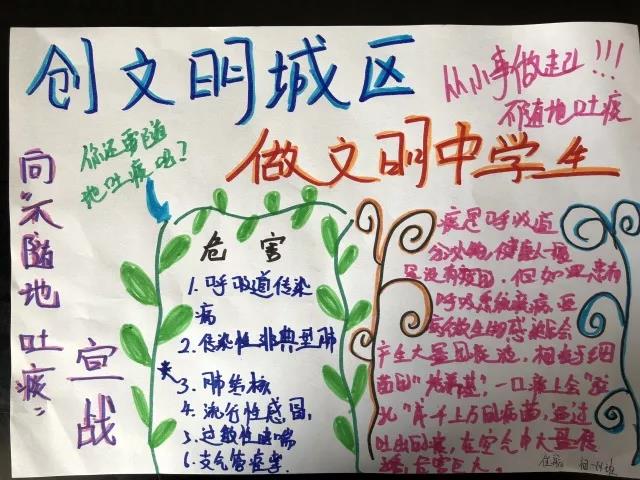 创文明城区
从小事做起!!!
不随地吐痰
做文明中学生
你还要随
地吐痰吗?
向“不随地吐痰”
宣战
危害
1.呼吸道传染
病
2.传染性非典型肺
炎
3.肺结核
4.流行性感冒,
5.过敏性哮喘
6.支气管痉挛
痰是呼吸道
分泌物,健康人一般
是没有痰的,但如果患有
呼吸系统疾病,
微生物感染会
产生大量的痰液,相当于细
菌的“培养基”,一口痰上会“孵
化”成千上万的病菌,通过
吐出的痰,在空气中大量传
播,危害巨大。